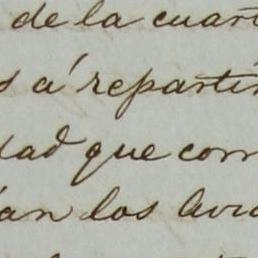 de la cuart
s á repartir
dad que corr
an los avio